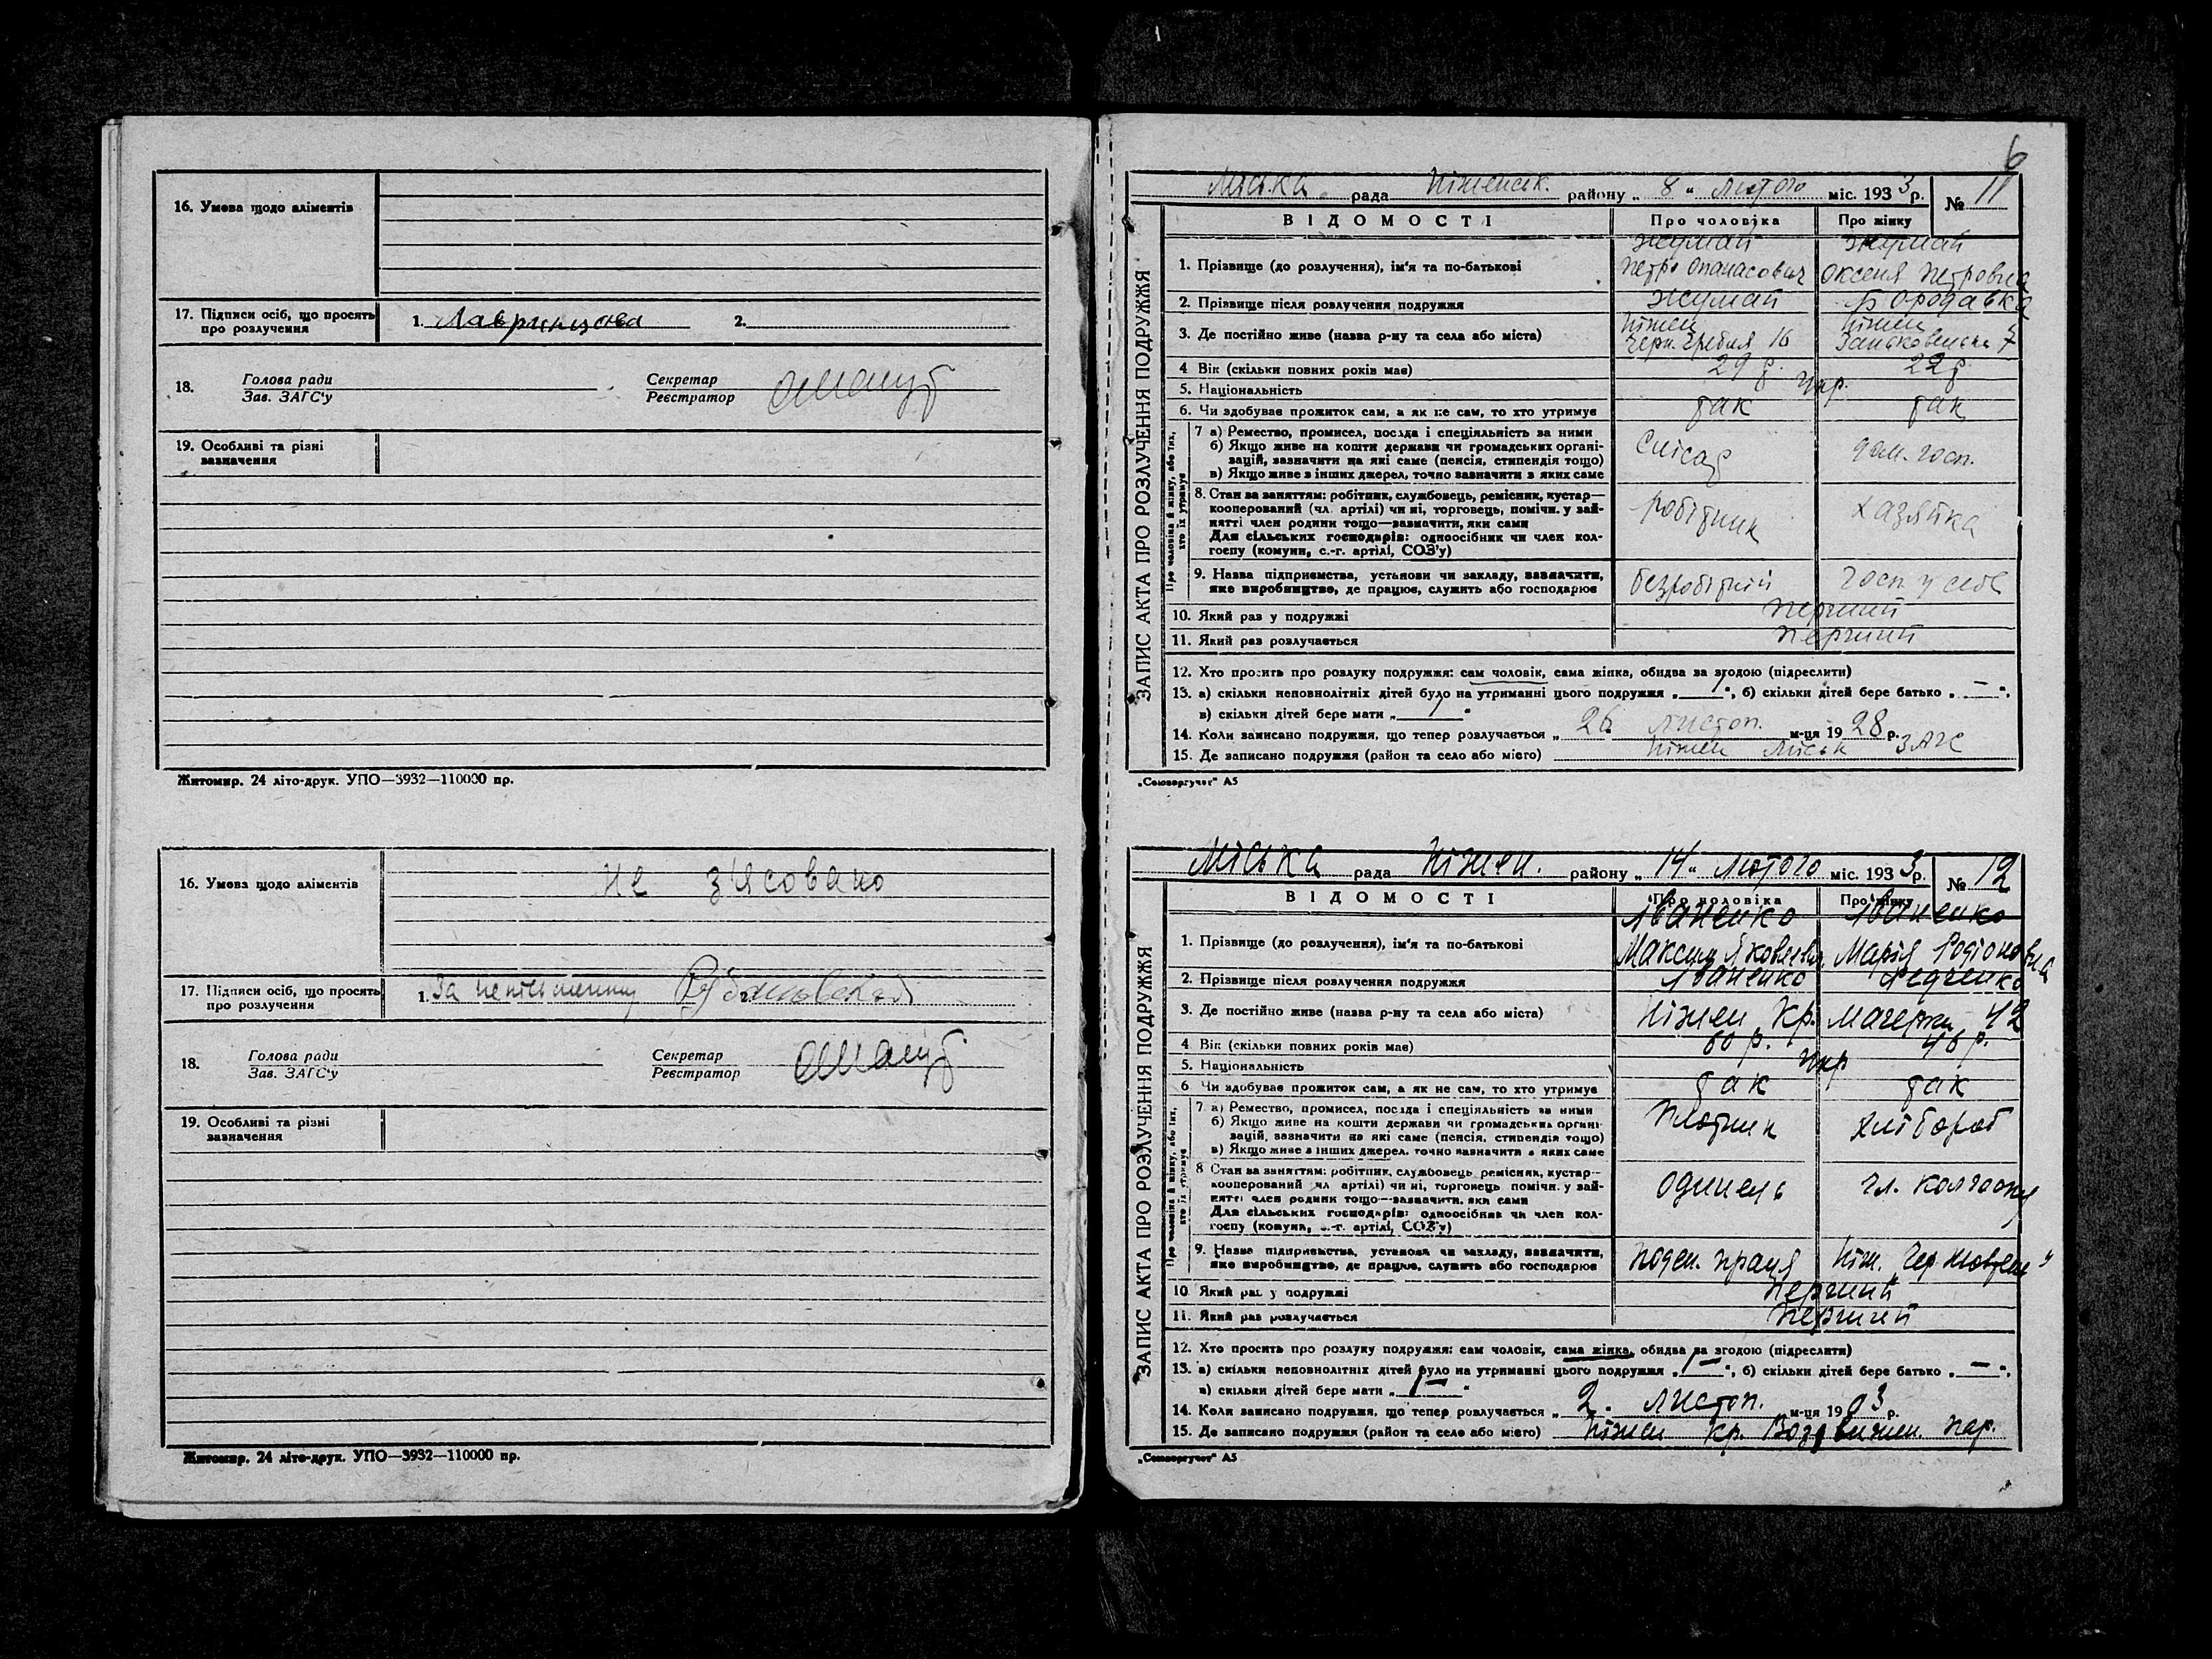 16. Умова щодо аліментів
17. Підписи осіб, що просять
про розлучення
1. Лавриншова 2.
18.
Голова ради
Зав. ЗАГС'у
Секретар
Реєстратор
19. Особливі та різні
зазначення
Житомир. 24 літо-друк. УПО—3932—110000 пр.
16. Умова щодо аліментів
Не з'ясовано
17. Підписи осіб, що просять
про розлучення
1. За неписьменну 2.
18.
Голова ради
Зав. ЗАГС'у
Секретар
Реєстратор
19. Особливі та різні
зазначення
Житомир. 24 літо-друк. УПО—3932—110000 пр.
6
Міська рада Ніженськ. району „ 8 " Лютого міс. 1933 р. № 11
ЗАПИС АКТА ПРО РОЗЛУЧЕННЯ ПОДРУЖЖЯ
ВІДОМОСТІ Про чоловіка Про жінку
1. Прізвище (до розлучення), ім'я та по-батькові
Жумай Жумай
Петро Опанасович Оксеня Петровна
2. Прізвище після розлучення подружжя Жумай Бородавка
3. Де постійно живе (назва р-ну та села або міста)
Ніжен Ніжен
Черн. Гребля 16 Заньковецька 7
4 Вік (скільки повних років має) 29 р. 22 р.
5. Національність Укр.
6. Чи здобуває прожиток сам, а як не сам, то хто утримує так так
Про чоловіка й жінку, або тих,
хто їх утримує
7 а) Ремество, промисел, посада і спеціяльність за ними
б) Якщо живе на кошти держави чи громадських органі-
зацій, зазначити на які саме (пенсія, стипендія тощо)
в) Якщо живе з інших джерел, точно зазначити з яких саме
Слісар дом. госп.
8. Стан за заняттям: робітник, службовець, ремісник, кустар—
кооперований (чл. артілі) чи ні, торговець, помічн. у зай-
нятті член родини тощо—зазначити, яки сами
Для сільських господарів: одноосібник чи член кол-
госпу (комуни, с.-г. артілі, СОЗ'у)
робітник хазяйка
9. Назва підприємства, установи чи закладу, зазначити,
яке виробництво, де працює, служить або господарює
безробітний госп у себе
10. Який раз у подружжі перший
11. Який раз розлучається перший
12. Хто просить про розлуку подружжя: сам чоловік, сама жінка, обидва за згодою (підреслити)
13. а) скільки неповнолітніх дітей було на утриманні цього подружжя „ 1 ", б) скільки дітей бере батько „ — ",
в) скільки дітей бере мати „ 1 "
14. Коли записано подружжя, що тепер розлучається „ 26 листоп. м-ця 1928 р.
15. Де записано подружжя (район та село або місто) Ніжен Міськ ЗАГС
„Союзоргучет" А5
Міська рада Ніжен. району „ 14 " Лютого міс. 1933 р. № 12
ЗАПИС АКТА ПРО РОЗЛУЧЕННЯ ПОДРУЖЖЯ
ВІДОМОСТІ Про чоловіка Про жінку
1. Прізвище (до розлучення), ім'я та по-батькові
Іваненко Іваненко
Максим Яковлевич. Марія Родіоновна
2. Прізвище після розлучення подружжя Іваненко Редченко
3. Де постійно живе (назва р-ну та села або міста) Ніжен Кр. Магерки 42
4 Вік (скільки повних років має) 60 р. 46 р.
5. Національність Укр
6 Чи здобуває прожиток сам, а як не сам, то хто утримує так так
Про чоловіка й жінку, або тих,
хто їх утримує
7. а) Ремество, промисел, посада і спеціяльність за ними
б) Якщо живе на кошти держави чи громадських органі-
зацій, зазначити на які саме (пенсія, стипендія тощо)
в) Якщо живе з інших джерел, точно зазначити з яких саме
Плотник хлібороб
8 Стан за заняттям: робітник, службовець, ремісник, кустар—
кооперований чл артілі) чи ні, торговець, помічн. у зай-
нятті член родини тощо—зазначити, яки сами
Для сільських господарів: одноосібник чи член кол-
госпу (комуни, с.-г. артілі, СОЗ'у)
одинець чл. колгоспу
9. Назва підприємства, установи чи закладу, зазначити,
яке виробництво, де працює, служить або господарює
поден. праця Ніж. Чер. Жовтень"
10 Який раз у подружжі перший
11. Який раз розлучається перший
12. Хто просить про розлуку подружжя: сам чоловік, сама жінка, обидва за згодою (підреслити)
13. а) скільки неповнолітніх дітей було на утриманні цього подружжя „ 1 ", б) скільки дітей бере батько „ — ",
в) скільки дітей бере мати „ 1 "
14. Коли записано подружжя, що тепер розлучається „ 2. листоп. м-ця 1903 р.
15. Де записано подружжя (район та село або місто) Ніжен Кр. Воздвижен. пар.
„Союзоргучет" А5